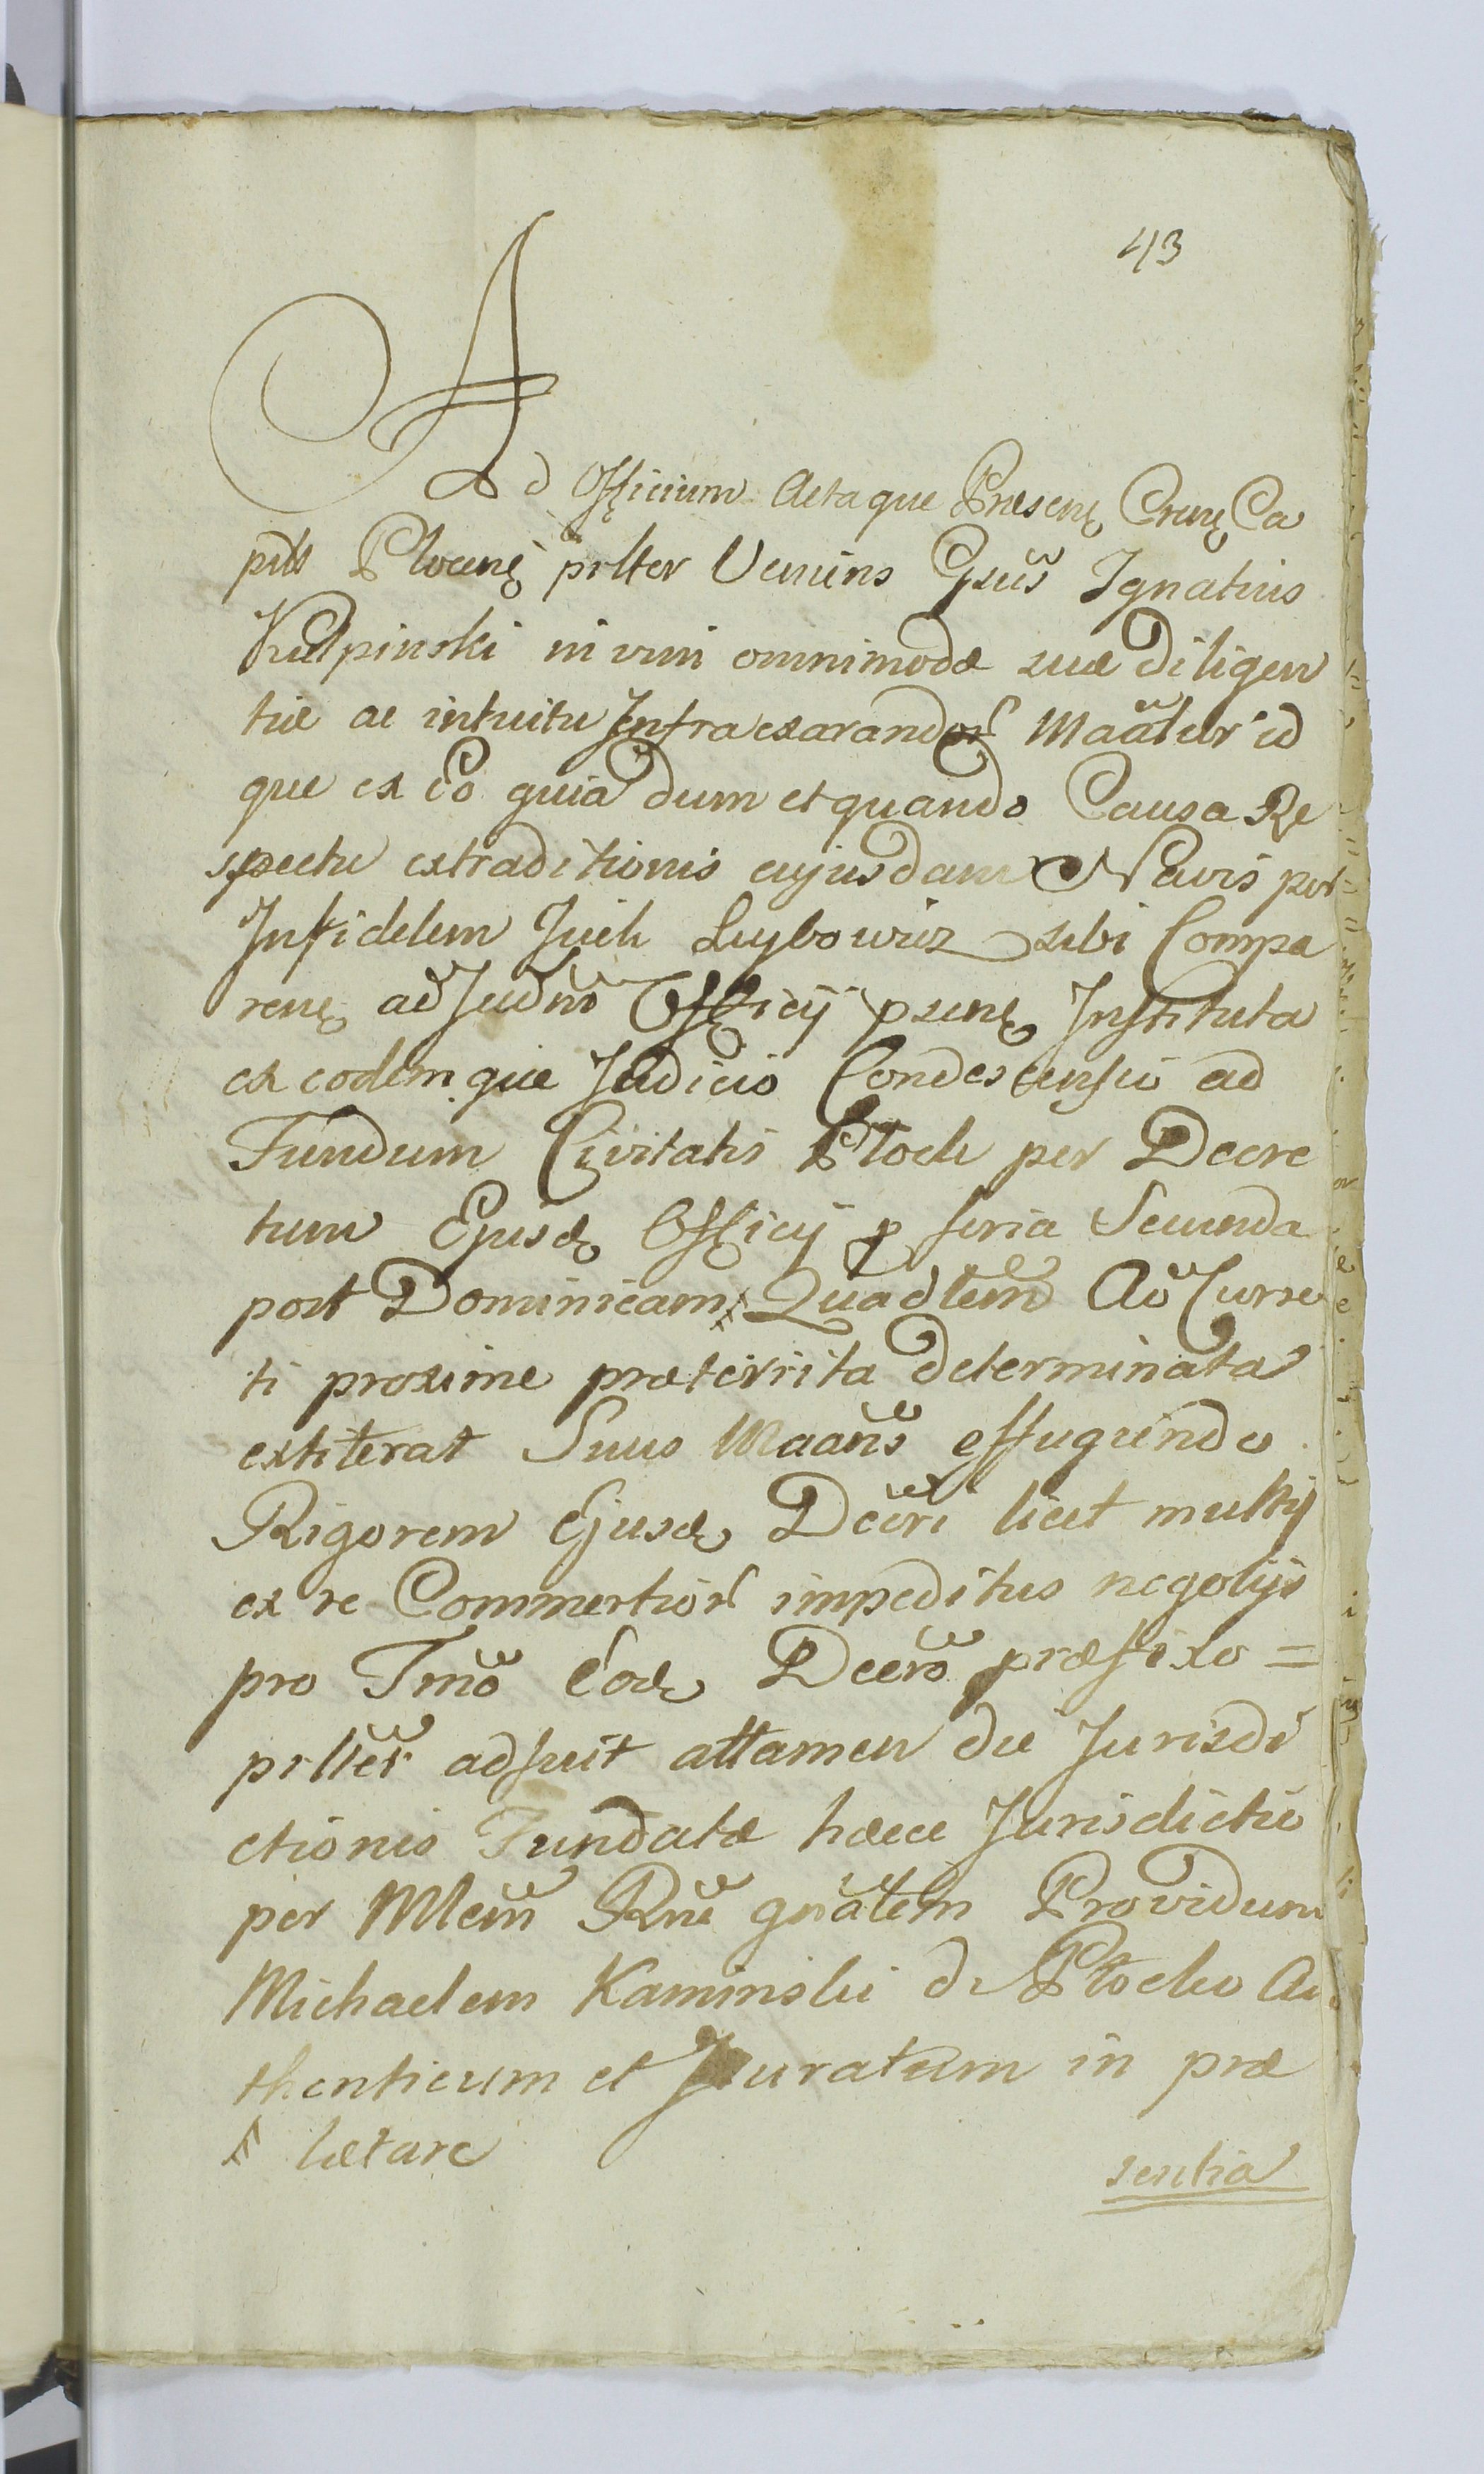 43
Ad Officium Actaque Præsenę Crenę Ca
pitls Plocenę pslter Veniens Gsus Ignatius
Kulpinski in vim omnimodæ suæ Diligen
tiæ ac intuitu Infraexarandor Maatur id
que ex Eo quia dum et quando Causa Re
spectu extraditionis cujusdam Navis per
Infidelem Juek Leybowicz sibi Compa
renę ad Judm Officij psenę Instituta
ex eodemque Judicio Condescensio ad
Fundum Civitatis Płock per Decre
tum Ejusd Officij p feria Secunda
post Dominicam Quadlem Ao Curre
ti proxime præterita determinata
extiterat Suus Maans effugiendo
Rigorem Ejusd Decri licet multij
ex re Commertior impeditus negotijs
pro Tmo Eod Decro præfixo =
psltter adfuit attamen die Jurisdi
ctionis Fundatæ hæce Jurisdictio
per Mlem Rne gnatem Providum
Michaelem Kaminski de Płocko Au
thenticum et Juratum in præ
lætare
sentia